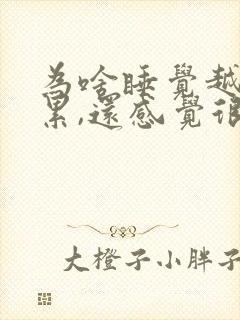 為啥睡覺越
累,還感覺很
大橙子小胖子